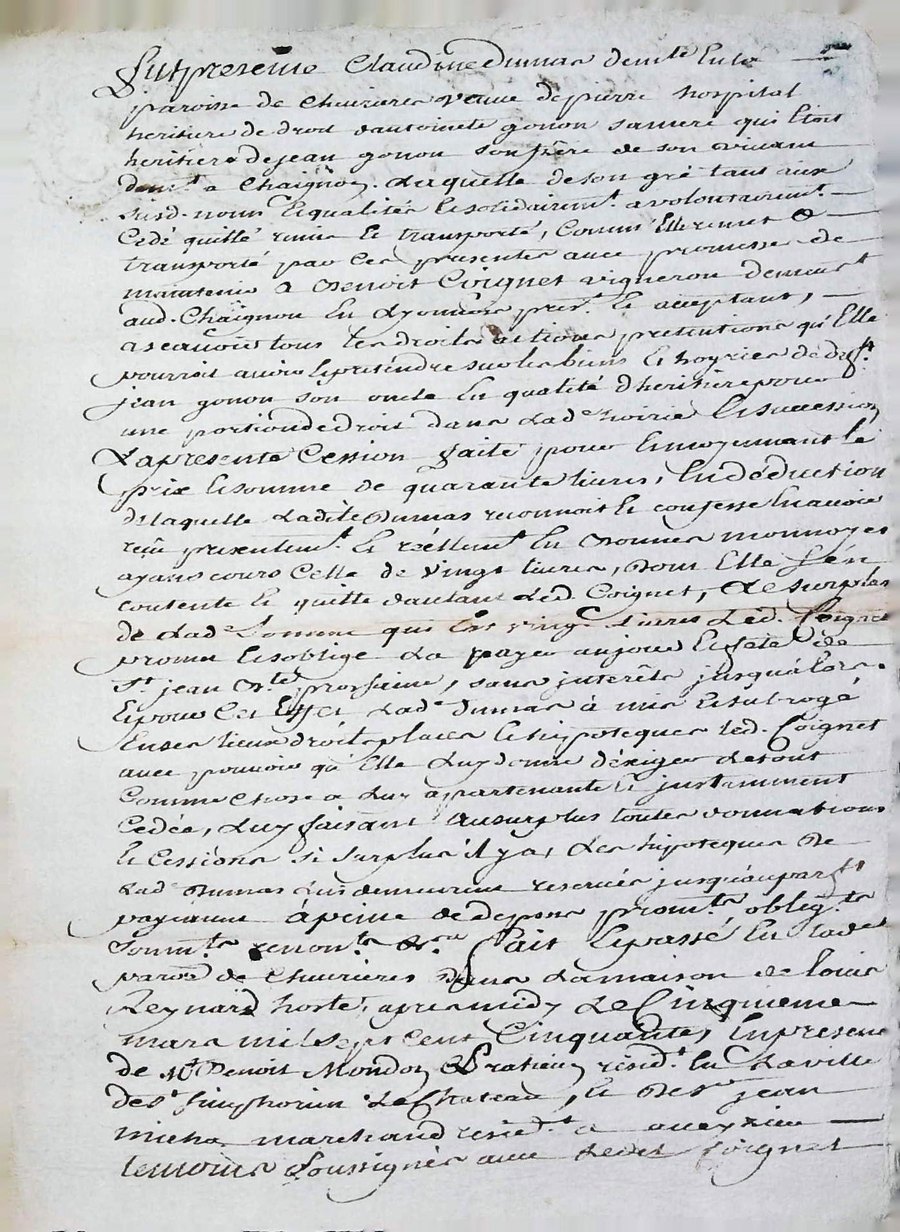 Fut presente Claudine Dumas demte en la
paroisse de Chevrieres veuve de pierre hospital
heritiere de droit d'antoinete gonon sa mere qui etoit
heritiere de jean gonon son frere de son vivant
demt a Chaignon. Laquelle de son gré tant aux
susd. noms et qualités et solidairemt. a volontairemt.
Cedé quitté remis et transporté, comm' Elle remet &
transporte par ces presentes avec promesse de
maintenir a Benoit Coignet vigneron demeurt
aud. Chaignon en Lyonnois prest. et acceptant,
a scavoir tous les droits actions pretentions qu'Elle
pourroit avoir et pretendre sur les biens et hoyries dudt.
jean gonon son oncle en qualité d'heritiere pour
une portion de droit dans Lade hoirie et succession
La presente Cession faite pour et moyennant le
prix et somme de quarante livres, En déduction
de laquelle Ladite Dumas reconnoit et confesse En avoir
reçu presentemt. et reéllemt En Bonnes monnoyes
ayans cours Celle de vingt livres, dont Elle s'en
contente et quitte d'autant Led. Coignet, Le surplus
de Lade Somme qui Est vingt Livres Led. Coignet
promet et s'oblige La payer au jour et fete de
St. jean Bte prochaine, sans interêts jusqu'alors.
Et pour cet Effet Lade Dumas à mis et subrogé
En ses lieux droits places et hypoteques led. Coignet
avec pouvoir qu'Elle Luy donne d'exiger le tout
Comme chose a Luy appartenante et justemment
Cedée, Luy faisant au surplus toutes donnations
et Cessions si surplus il y a, Les hypoteques de
Lade Dumas Luy demeurent reservés jusqu'au parft
payement à peine de depens promts. obligts.
soumts. renonts. &ca fait et passé En lade
parsse de Chevrieres dans La maison de Louis
Reynard hoste, apres midy Le Cinquieme
mars mil sept cent Cinquante, En presence
de Mt. Benoit Mondon Praticien residt. En La ville
de St. Simphorien Le Chateau, et de Sr jean
marchand residt. a
temoins Soussignés avec Ledit Coignet